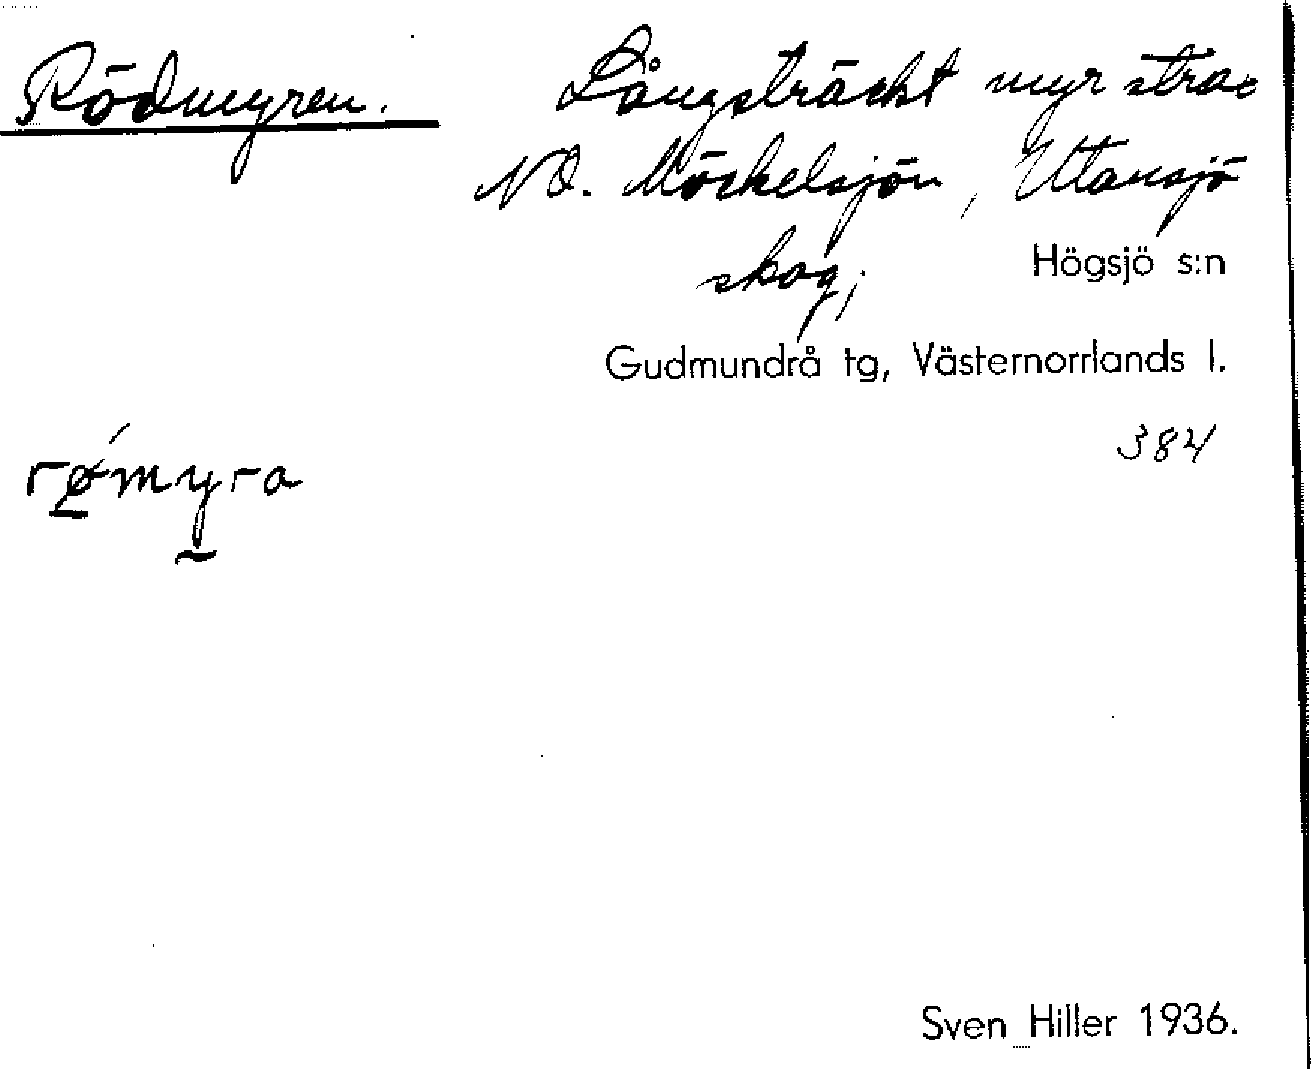 Rödmyren.
Långsträckt myr strax
NO. Möckelsjön, Utansjö
skog,
Högsjö s:n
Gudmundrå tg, Västernorrlands l.
384
rǿ̲my̰ra
Sven Hiller 1936.